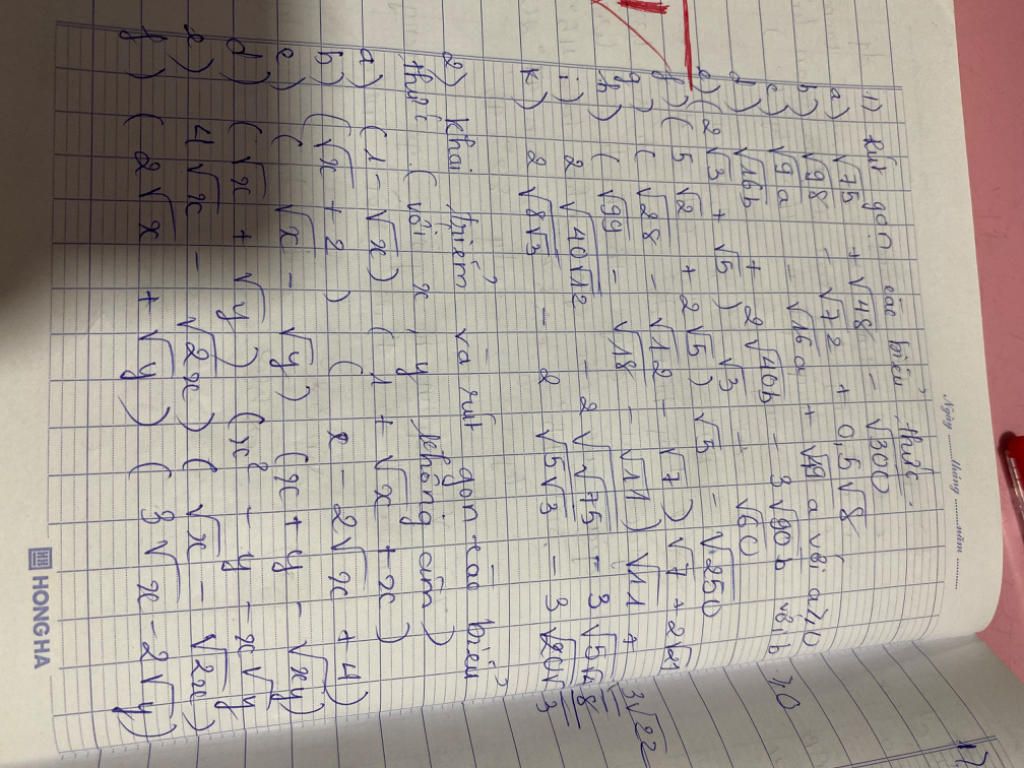 Ngày ........ tháng ........ năm ........
17
1) Rút gọn các biểu thức:
a) √75 + √48 - √300
b) √98 - √72 + 0,5√8
c) √9a - √16a + √49a với a ≥ 0
d) √16b + 2√40b - 3√90b với b ≥ 0
e) (2√3 + √5) √3 - √60
f) (5√2 + 2√5) √5 - √250
g) (√28 - √12 - √7) √7 + 2√21
h) (√99 - √18 - √11) √11 + 3√22
i) 2√40√12 - 2√√75 - 3√5√48
k) 2√8√3 - 2√5√3 - 3√20√3
2) Khai triển và rút gọn các biểu
thức (với x, y không âm)
a) (1 - √x) (1 + √x + x)
b) (√x + 2) (x - 2√x + 4)
c) (√x - √y) (x + y - √xy)
d) (√x + √y) (x² - y - x√y)
e) 4√x - √2x) (√x - √2x)
f) (2√x + √y) (3√x - 2√y)
HONG HA